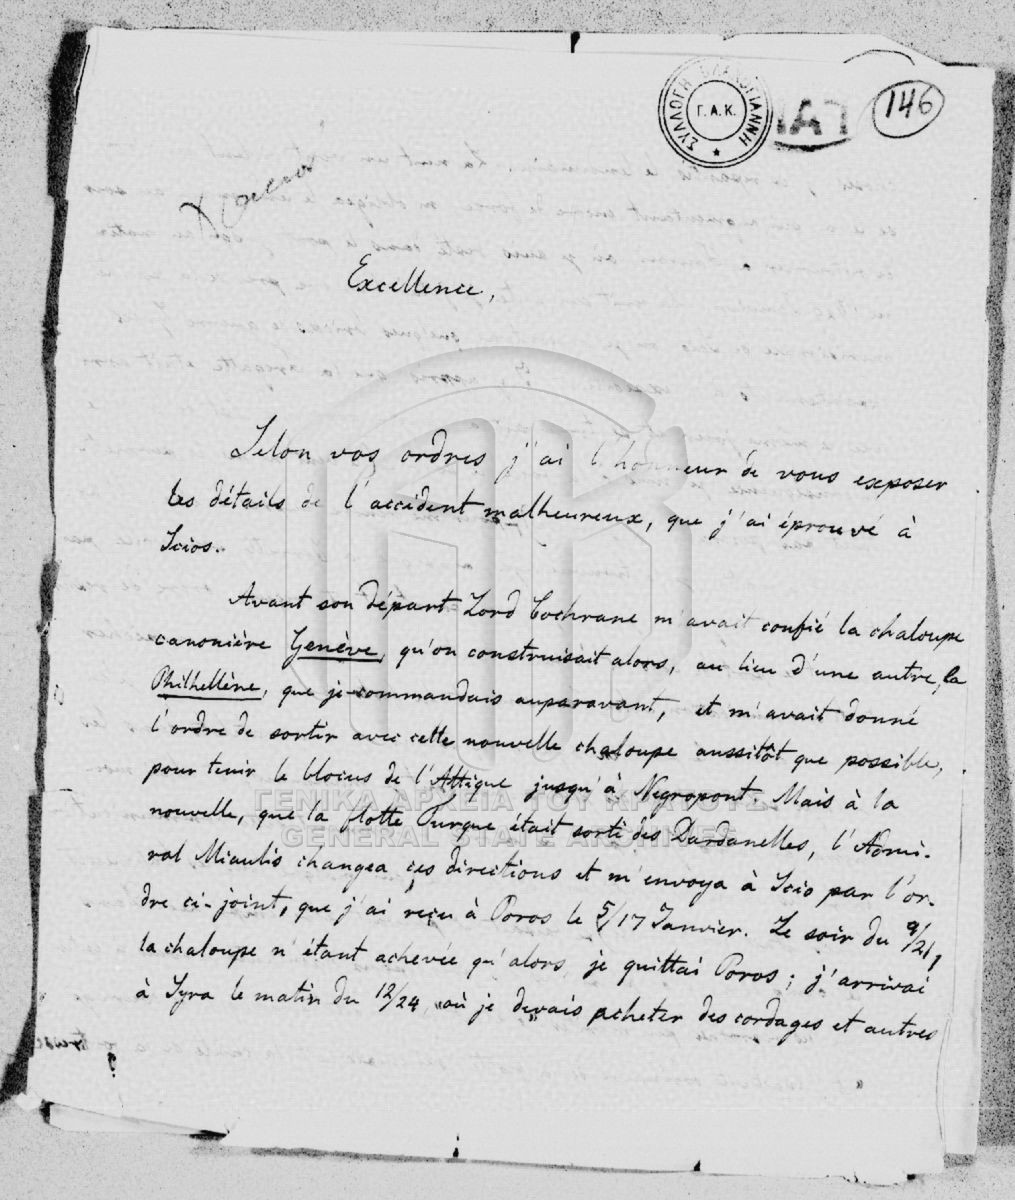 ΣΥΛΛΟΓΗ ΒΛΑΧΟΓΙΑΝΝΗ
Γ.Α.Κ.
146
Excellence,
Selon vos ordres j'ai l'honneur de vous exposer
les détails de l'accident malheureux, que j'ai éprouvé à
Scios.
Avant son départ Lord Cochrane m'avait confié la chaloupe
canonière Genève, qu'on construisait alors, au lieu d'une autre, la
Philhellène, que je commandais auparavant, et m'avait donné
l'ordre de sortir avec cette nouvelle chaloupe aussitôt que possible,
pour tenir le blocus de l'Attique jusqu'à Negropont. Mais à la
nouvelle, que la flotte Turque était sorti des Dardanelles, l'Admi-
ral Miaulis changea ces directions et m'envoya à Scio par l'or-
dre ci-joint, que j'ai reçu à Poros le 5/17 Janvier. Le soir du 9/21,
la chaloupe n'étant achevée qu'alors, je quittai Poros; j'arrivai
à Syra le matin du 12/24, où je devais acheter des cordages et autres
ΓΕΝΙΚΑ ΑΡΧΕΙΑ ΤΟΥ ΚΡΑΤΟΥΣ
GENERAL STATE ARCHIVES